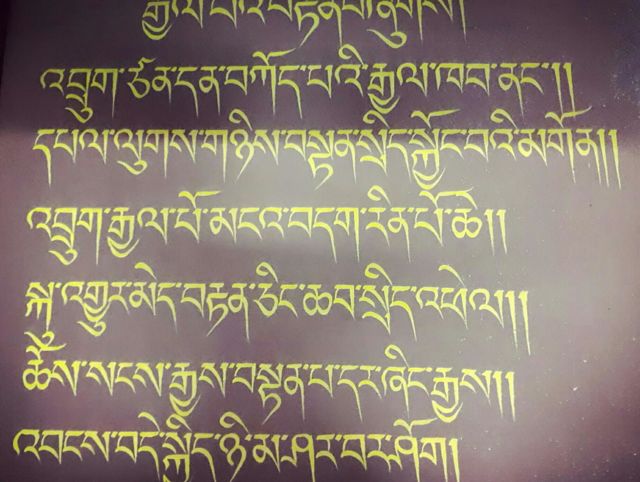 རྒྱལ་པའི་བརྟན་བཞུགས།
འབྲུག་ཙན་དན་བཀོད་པའི་རྒྱལ་ཁབ་ནང་།།
དཔལ་ལུགས་གཉིས་བསྟན་སྲིད་སྐྱོང་བའི་མགོན།།
འབྲུག་རྒྱལ་པོ་མངའ་བདག་རིན་པོ་ཆེ།།
སྐུ་འགྱུར་མེད་བརྟན་ཅིང་ཆབ་སྲིད་འཕེལ།།
ཆོས་སངས་རྒྱས་བསྟན་པ་དར་ཞིང་རྒྱས།།
འབངས་བདེ་སྐྱིད་ཉི་མ་ཤར་བར་ཤོག།